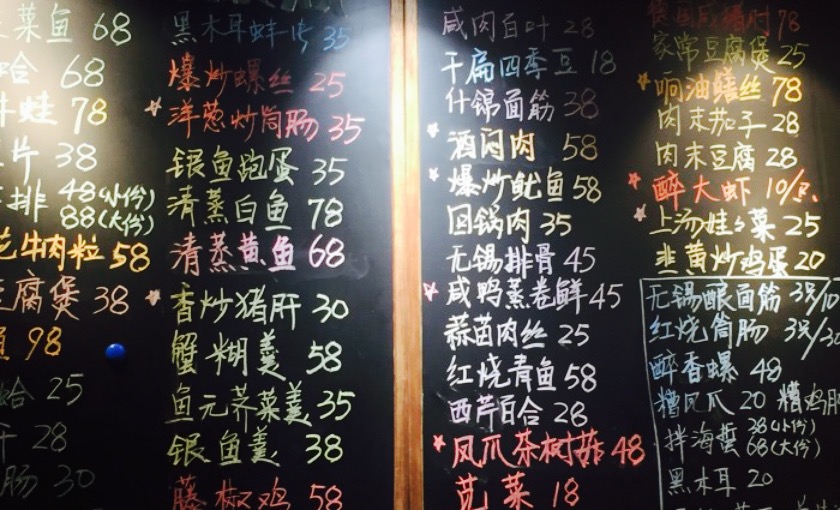 菜鱼 68
哈 68
牛蛙 78
片 38
排 48(小份)
88(大份)
牛肉粒 58
豆腐煲 38
98
哈 25
干 28
肠 30
黑木耳蚌片 35
爆炒螺丝 25
洋葱炒筒肠 35
银鱼跑蛋 35
清蒸白鱼 78
清蒸黄鱼 68
香炒猪肝 30
蟹糊羹 58
鱼元荠菜羹 35
银鱼羹 38
藤椒鸡 58
咸肉百叶 28
干扁四季豆 18
什锦面筋 38
酒闷肉 58
爆炒鱿鱼 58
回锅肉 35
无锡排骨 45
咸鸭蒸卷鲜 45
蒜苗肉丝 25
红烧青鱼 58
西芹百合 28
凤爪茶树菇 48
苋菜 18
德国咸猪肘 78
家常豆腐煲 25
响油鳝丝 78
肉末茄子 28
肉末豆腐 28
醉大虾 10/只
上汤娃々菜 25
韭黄炒鸡蛋 20
无锡酿面筋 3只/10
红烧筒肠 3只/30
醉香螺 48
糟凤爪 20 糟鸡
拌海蜇 38(小份)
68(大份)
黑木耳 20